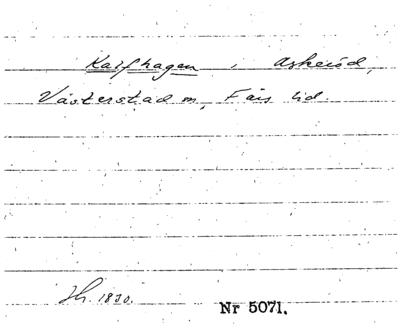 Kalfhagen, Askeröd,
Västerstad sn, Färs hd.
Jh. 1830.
Nr 5071.